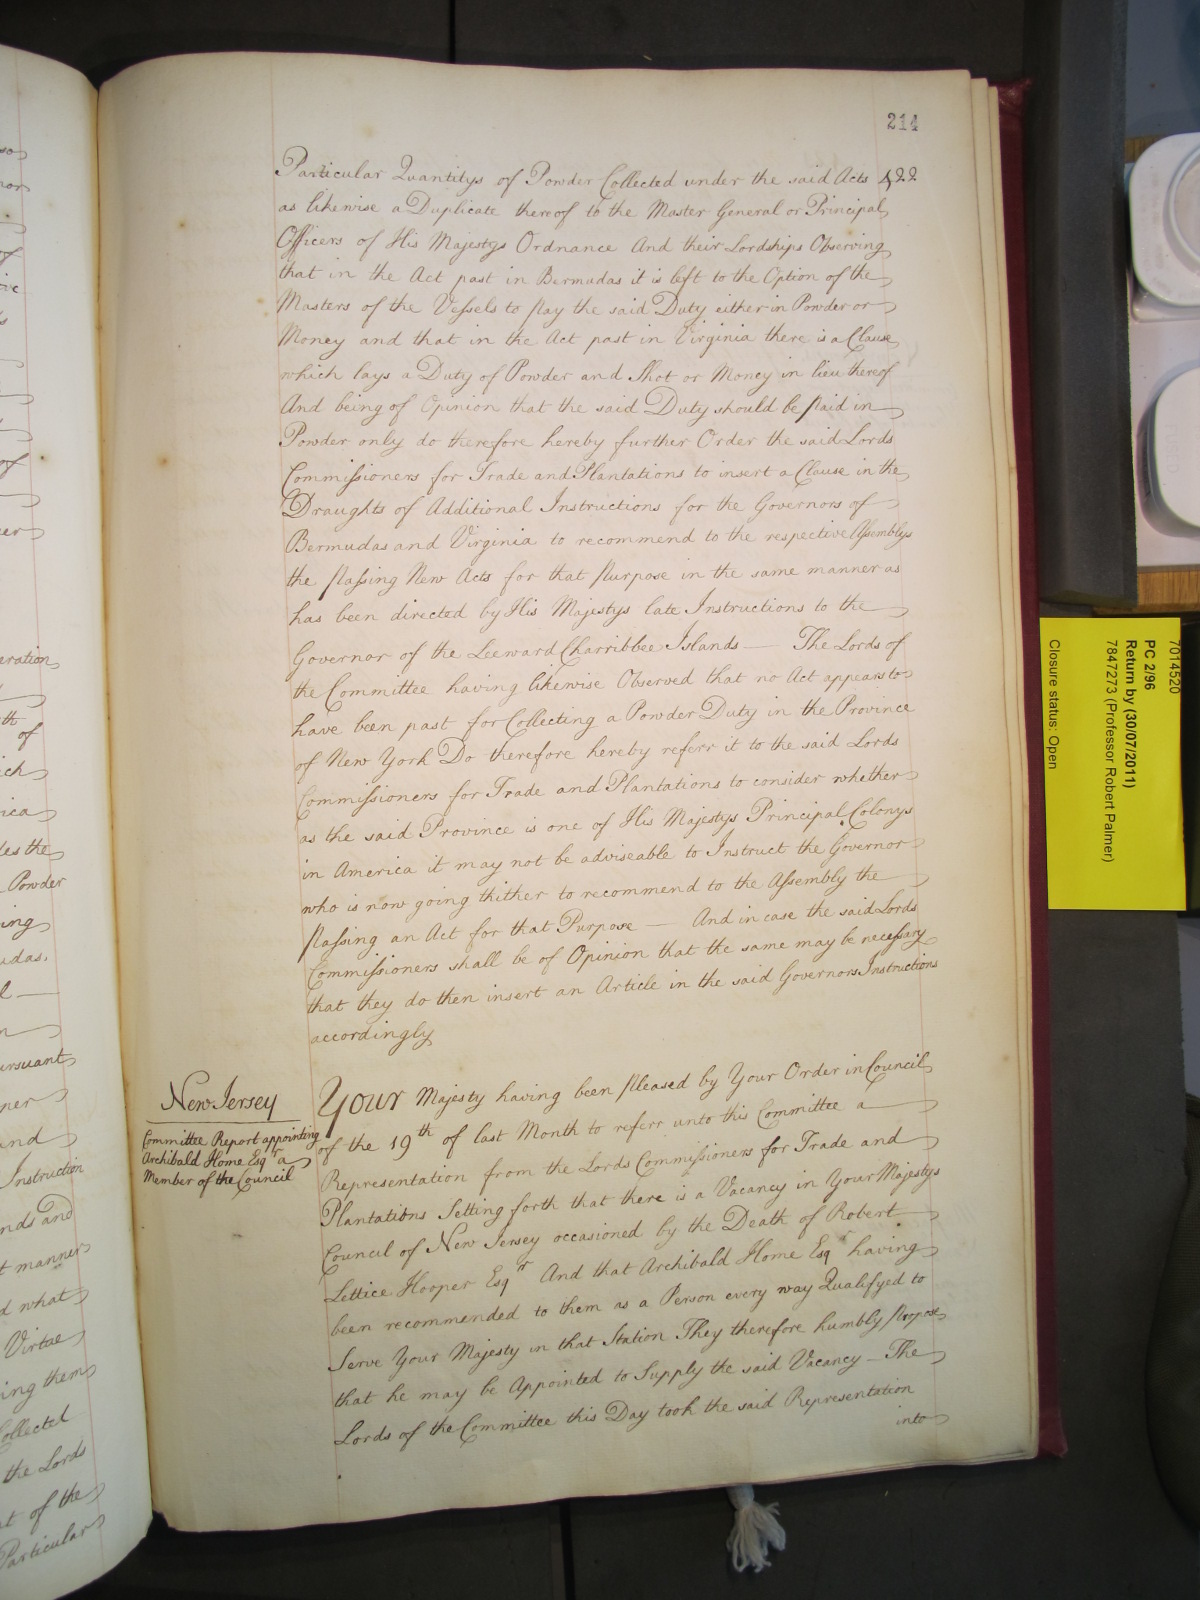 214
Particular Quantitys of Powder Collected under the said Acts 422
as likewise a Duplicate thereof to the Master General or Principal
Officers of His Majestys Ordnance And their Lordships Observing
that in the Act past in Bermudas it is left to the Option of the
Masters of the Vessels to pay the said Duty either in Powder or
Money and that in the Act past in Virginia there is a Clause
which lays a Duty of Powder and Shot or Money in lieu thereof
And being of Opinion that the said Duty should be paid in
Powder only do therefore hereby further Order the said Lords
Commissioners for Trade and Plantations to insert a Clause in the
Draughts of Additional Instructions for the Governors of
Bermudas and Virginia to recommend to the respective Assemblys
the passing New Acts for that purpose in the same manner as
has been directed by His Majestys late Instructions to the
Governor of the Leeward Charribbee Islands — The Lords of
the Committee having likewise Observed that no Act appears to
have been past for Collecting a Powder Duty in the Province
of New York Do therefore hereby referr it to the said Lords
Commissioners for Trade and Plantations to consider whether
as the said Province is one of His Majestys Principal Colonys
in America it may not be adviseable to Instruct the Governor
who is now going thither to recommend to the Assembly the
passing an Act for that Purpose — And in case the said Lords
Commissioners shall be of Opinion that the same may be necessary
that they do then insert an Article in the said Governors Instructions
accordingly
New Jersey
Committee Report appointing
Archibald Home Esqr a
Member of the Council
Your Majesty having been pleased by Your Order in Council
of the 19th of last Month to referr unto this Committee a
Representation from the Lords Commissioners for Trade and
Plantations Setting forth that there is a Vacancy in Your Majestys
Council of New Jersey occasioned by the Death of Robert
Lettice Hooper Esqr And that Archibald Home Esqr having
been recommended to them as a Person every way Qualifyed to
Serve Your Majesty in that Station They therefore humbly propose
that he may be Appointed to Supply the said Vacancy — The
Lords of the Committee this Day took the said Representation
into
eration
th of
ich
ica
les the
Powder
ing
udas,
ursuant
ner
and
Instruction
nds and
t manner
d what
Virtue
ing them
Collected
the Lords
t of the
Particular
7014520
PC 2/96
Return by (30/07/2011)
7847273 (Professor Robert Palmer)
Closure status: Open